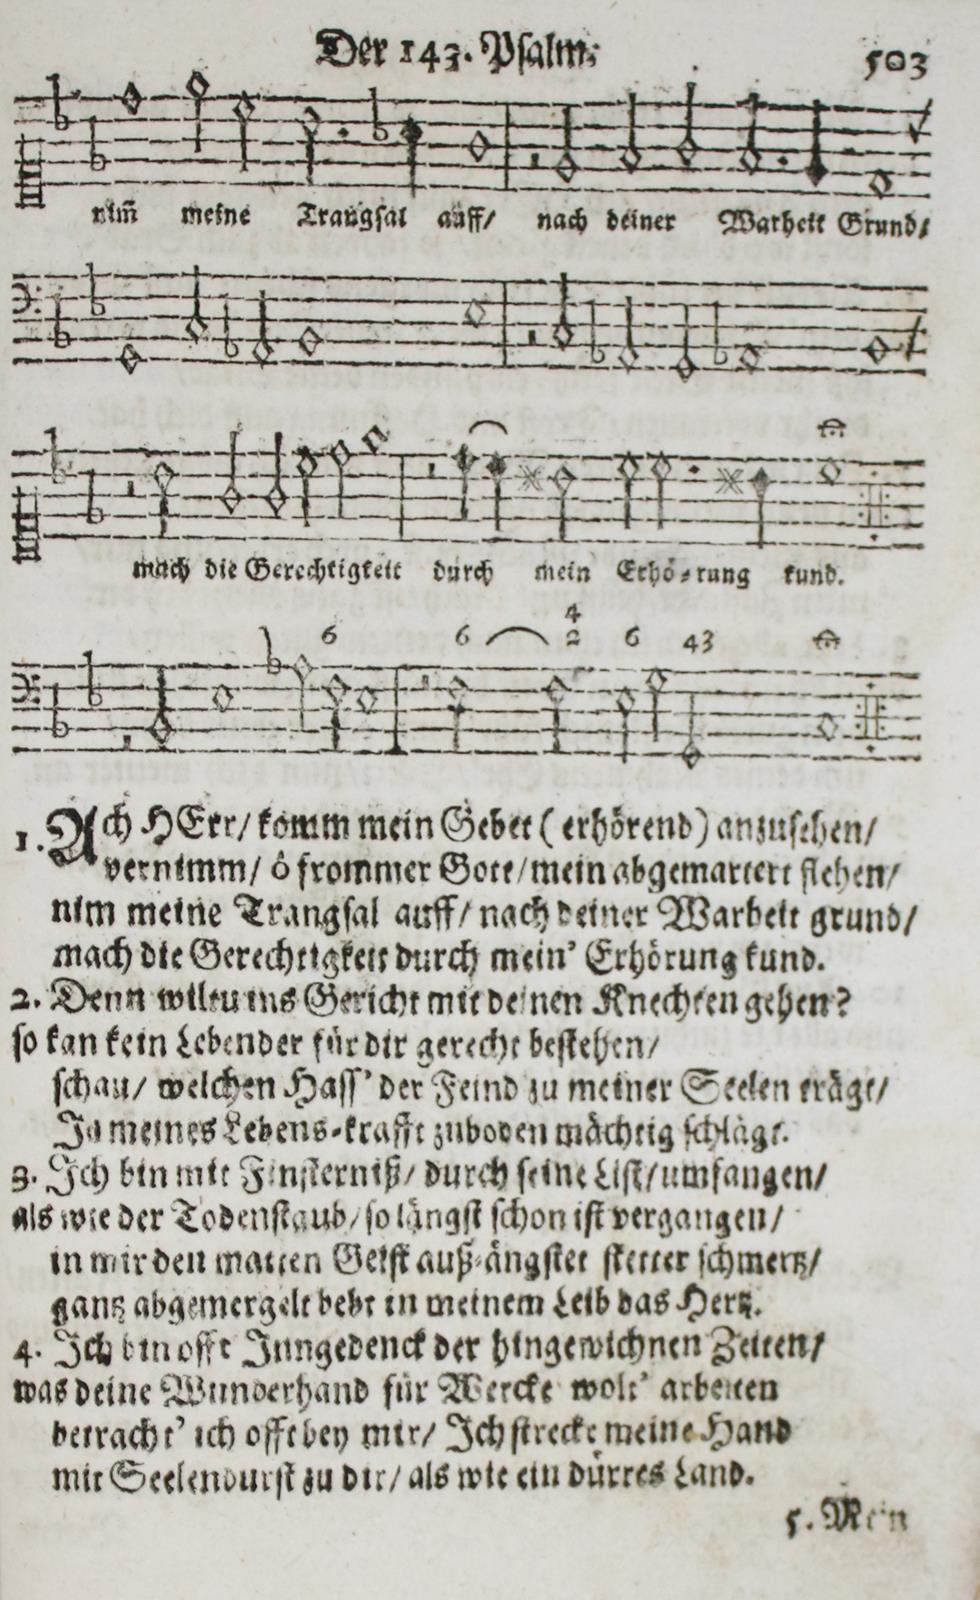 Der 143. Psalm.
503
nim̄ meine Trangsal auff/ nach deiner Warheit Grund/
mach die Gerechtigkeit durch mein Erhö-rung kund.
4
6 6 2 6 43
1. Ach HErr/ komm mein Gebet (erhörend) anzusehen/
vernimm/ ô frommer Gott/ mein abgemartert flehen/
nim meine Trangsal auff/ nach deiner Warheit grund/
mach die Gerechtigkeit durch mein' Erhörung kund.
2. Denn wiltu ins Gericht mit deinen Knechten gehen?
so kan kein Lebender für dir gerecht bestehen/
schau/ welchen Hass' der Feind zu meiner Seelen trägt/
Ja meines Lebens-krafft zuboden mächtig schlägt.
3. Ich bin mit Finsterniß/ durch seine List/ umfangen/
als wie der Todenstaub/ so längst schon ist vergangen/
in mir den matten Geist auß-ängstet stetter schmertz/
gantz abgemergelt bebt in meinem Leib das Hertz.
4. Ich bin offt Inngedenck der hingewichnen Zeiten/
was deine Wunderhand für Wercke wolt' arbeiten
betracht' ich offt bey mir/ Ich strecke meine Hand
mit Seelendurst zu dir/ als wie ein dürres Land.
5. Mein